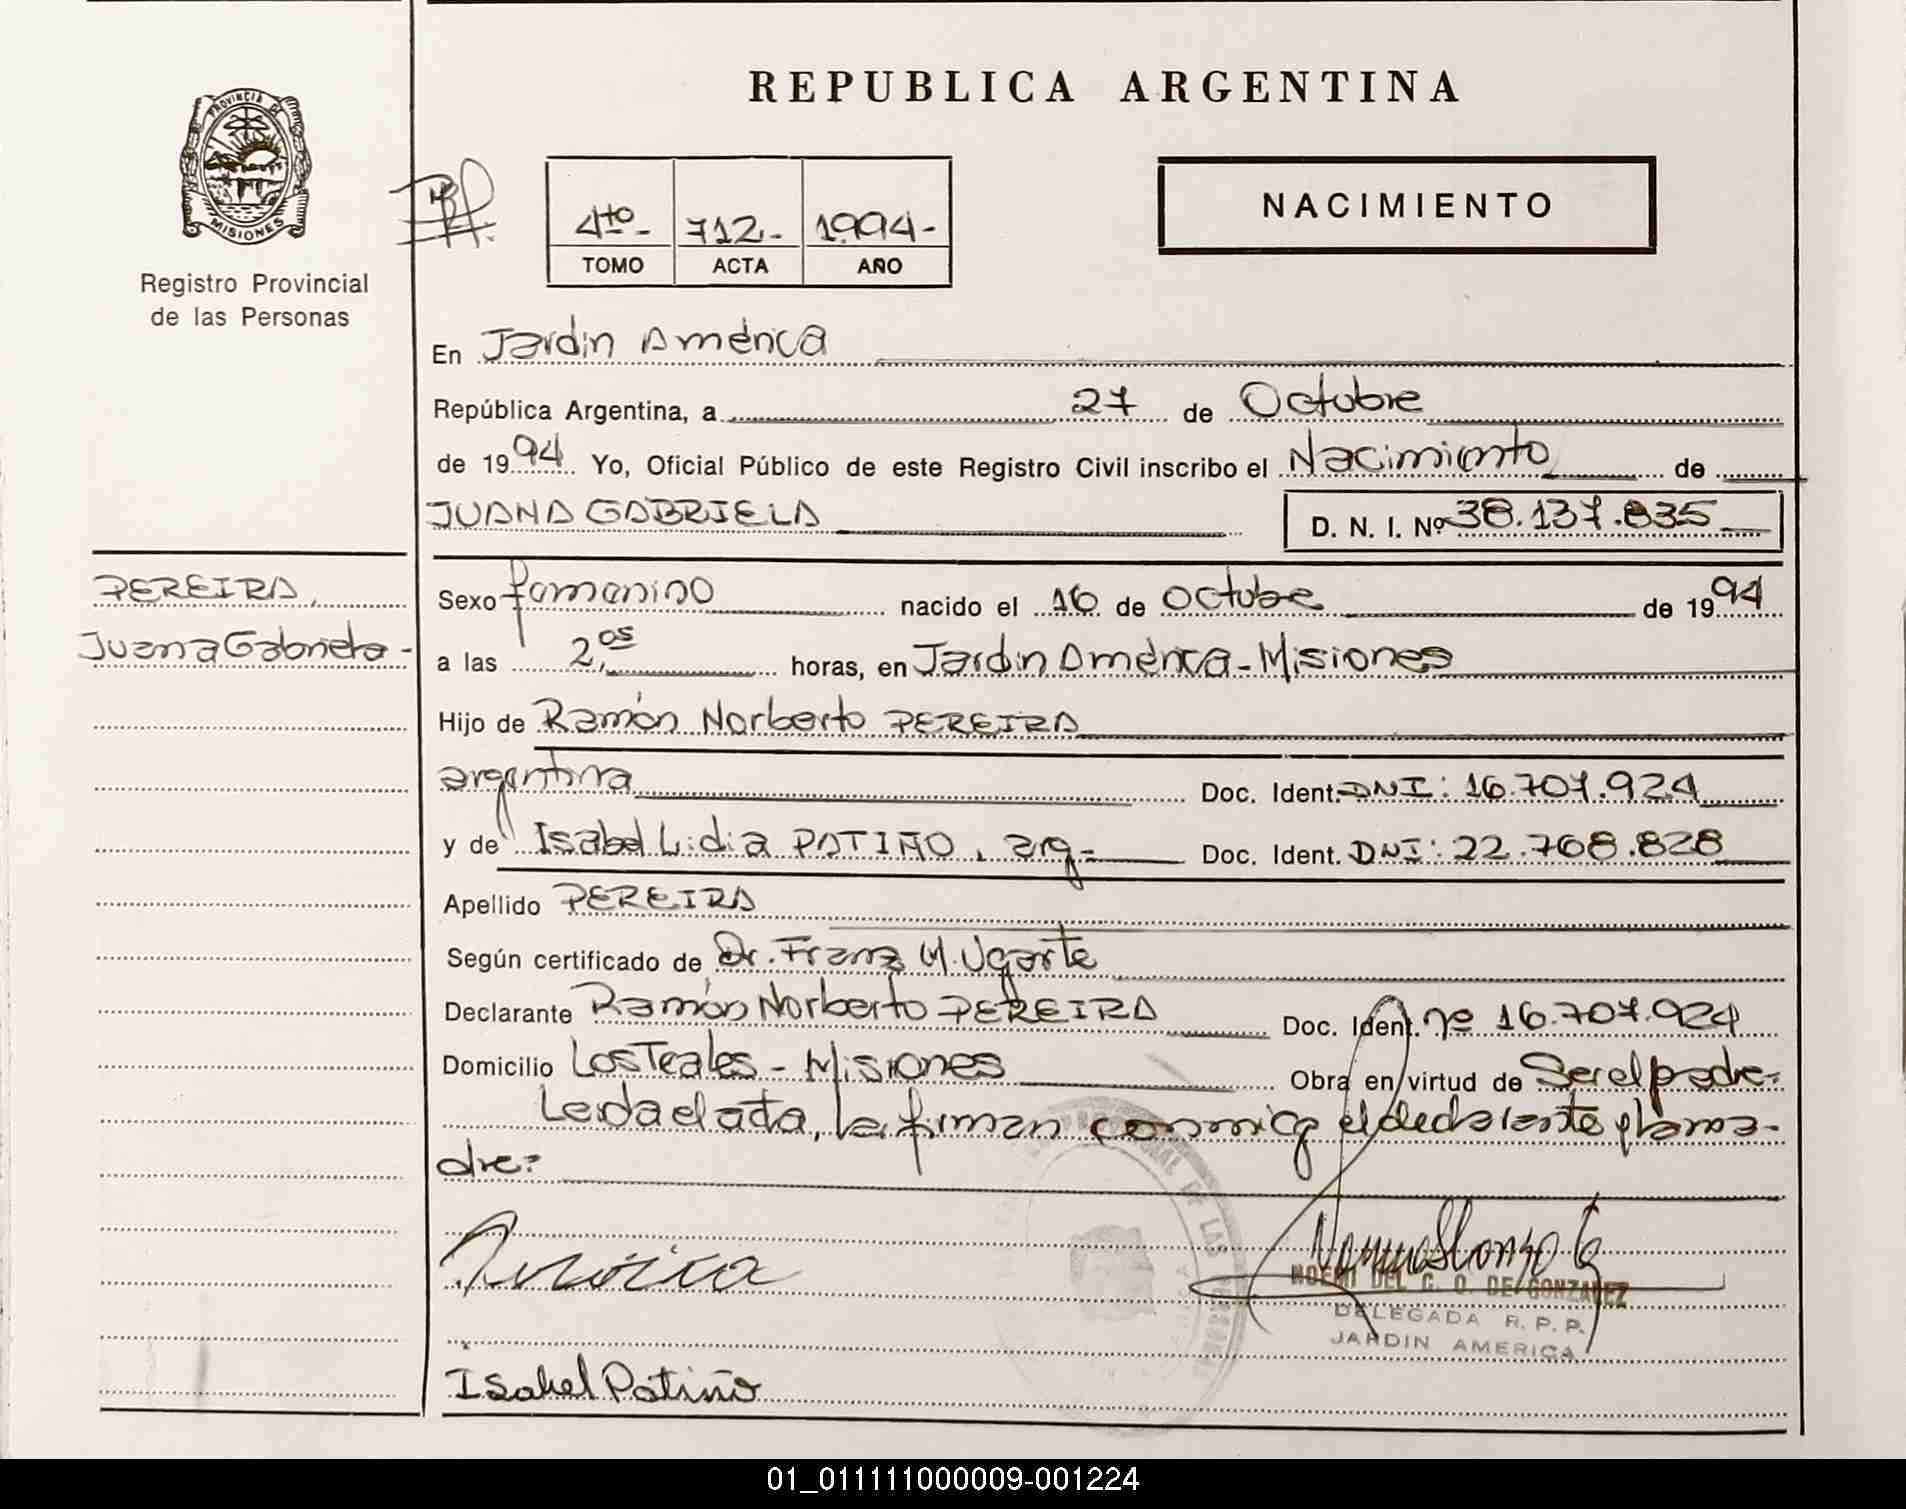 REPUBLICA ARGENTINA
PROVINCIA DE
MISIONES
Registro Provincial
de las Personas
4to- 712- 1994-
TOMO ACTA AÑO
NACIMIENTO
En Jardín América
República Argentina, a 27 de Octubre
de 1994 Yo, Oficial Público de este Registro Civil inscribo el Nacimiento de
JUANA GABRIELA D. N. I. Nº 38.137.835
PEREIRA,
Juana Gabriela-
Sexo femenino nacido el 16 de octubre de 1994
a las 2,05 horas, en Jardín América-Misiones
Hijo de Ramón Norberto PEREIRA
argentina Doc. Ident. DNI: 16.707.924
y de Isabel Lidia PATIÑO, arg- Doc. Ident. DNI: 22.768.828
Apellido PEREIRA
Según certificado de Dr. Franz M. Ugarte
Declarante Ramón Norberto PEREIRA Doc. Ident. nº 16.707.924
Domicilio Los Teales - Misiones Obra en virtud de Ser el padre-
Leida el acta, la firman conmigo el declarante y la ma-
dre-
NOEMI DEL C. O. DE GONZALEZ
DELEGADA R. P. P.
JARDIN AMERICA
Isabel Patiño
01_011111000009-001224